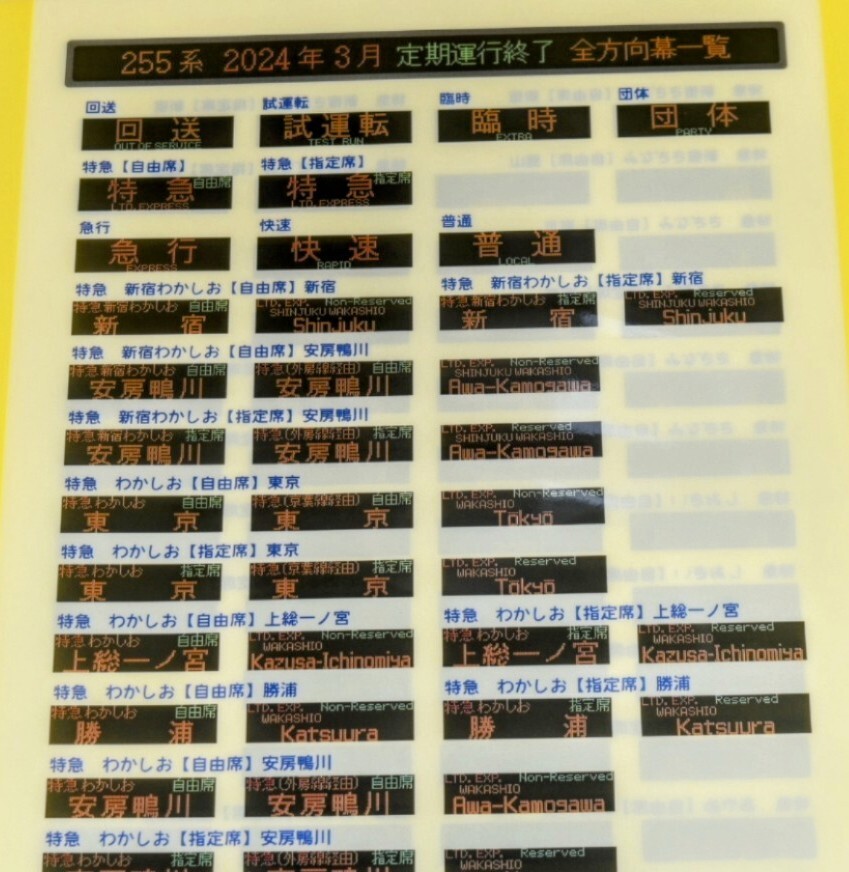 255系 2024年3月 定期運行終了 全方向幕一覧
回送 試運転 臨時 団体
回送 試運転 臨時 団体
OUT OF SERVICE TEST RUN EXTRA PARTY
特急【自由席】 特急【指定席】
特急 自由席 特急 指定席
LTD.EXPRESS LTD.EXPRESS
急行 快速 普通
急行 快速 普通
EXPRESS RAPID LOCAL
特急 新宿わかしお【自由席】新宿 特急 新宿わかしお【指定席】新宿
特急新宿わかしお 自由席 LTD. EXP. Non-Reserved 特急新宿わかしお 指定席 LTD. EXP. Reserved
SHINJUKU WAKASHIO SHINJUKU WAKASHIO
新宿 Shinjuku 新宿 Shinjuku
特急 新宿わかしお【自由席】安房鴨川
特急新宿わかしお 自由席 特急(外房線経由) 自由席 LTD. EXP. Non-Reserved
SHINJUKU WAKASHIO
安房鴨川 安房鴨川 Awa-Kamogawa
特急 新宿わかしお【指定席】安房鴨川
特急新宿わかしお 指定席 特急(外房線経由) 指定席 LTD. EXP. Reserved
SHINJUKU WAKASHIO
安房鴨川 安房鴨川 Awa-Kamogawa
特急 わかしお【自由席】東京
特急わかしお 自由席 特急(京葉線経由) 自由席 LTD. EXP. Non-Reserved
WAKASHIO
東京 東京 Tōkyō
特急 わかしお【指定席】東京
特急わかしお 指定席 特急(京葉線経由) 指定席 LTD. EXP. Reserved
WAKASHIO
東京 東京 Tōkyō
特急 わかしお【自由席】上総一ノ宮 特急 わかしお【指定席】上総一ノ宮
特急わかしお 自由席 LTD. EXP. Non-Reserved 特急わかしお 指定席 LTD. EXP. Reserved
WAKASHIO WAKASHIO
上総一ノ宮 Kazusa-Ichinomiya 上総一ノ宮 Kazusa-Ichinomiya
特急 わかしお【自由席】勝浦 特急 わかしお【指定席】勝浦
特急わかしお 自由席 LTD. EXP. Non-Reserved 特急わかしお 指定席 LTD. EXP. Reserved
WAKASHIO WAKASHIO
勝浦 Katsuura 勝浦 Katsuura
特急 わかしお【自由席】安房鴨川
特急わかしお 自由席 特急(外房線経由) 自由席 LTD. EXP. Non-Reserved
WAKASHIO
安房鴨川 安房鴨川 Awa-Kamogawa
特急 わかしお【指定席】安房鴨川
特急わかしお 指定席 特急(外房線経由) 指定席 LTD. EXP. Reserved
WAKASHIO